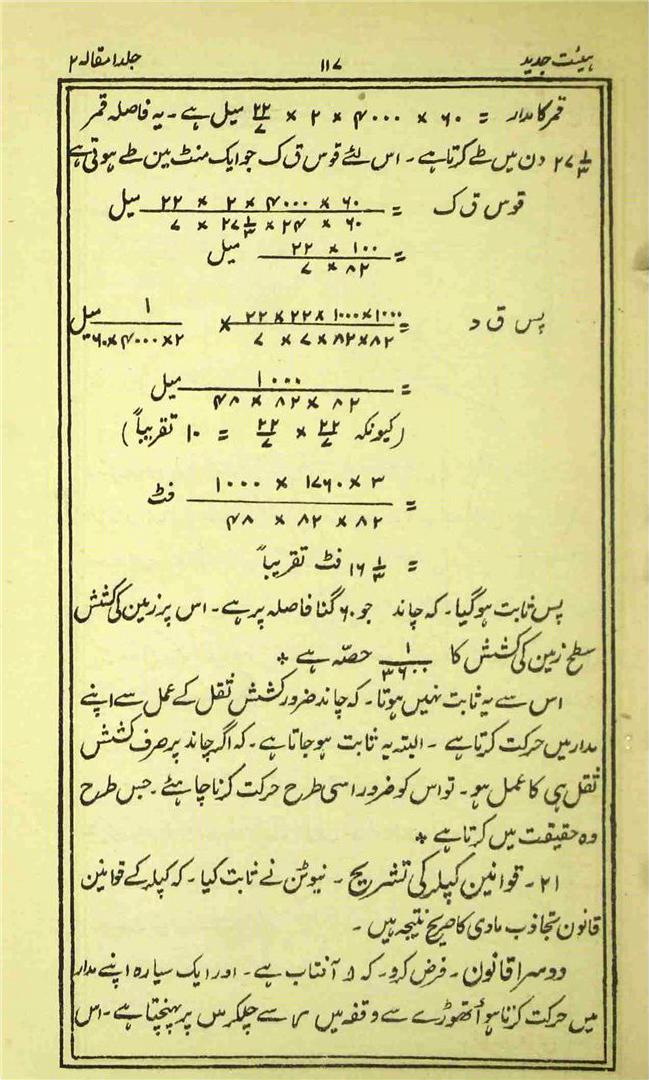 ہیئت جدید ۱۱۷ جلد ۱ مقالہ ۲
قمر کا مدار = ۶۰ × ۴۰۰۰ × ۲ × ۲۲/۷ میل ہے ۔ یہ فاصلہ قمر
۲۷ ۱/۳ دن میں طے کرتا ہے ۔ اس لئے قوس ق ک جو ایک منٹ میں طے ہوتی ہے
قوس ق ک = ۶۰ × ۴۰۰۰ × ۲ × ۲۲ / ۶۰ × ۲۴ × ۲۷ ۱/۳ × ۷ میل
= ۱۰۰ × ۲۲ / ۸۲ × ۷ میل
پس ق د = ۱۰۰۰×۱۰۰۰×۲۲×۲۲ / ۸۲×۸۲×۷×۷ × ۱ / ۲×۴۰۰۰×۶۰ میل
= ۱۰۰۰ / ۸۲ × ۸۲ × ۴۸ میل
(کیونکہ ۲۲/۷ × ۲۲/۷ = ۱۰ تقریباً)
= ۳ × ۱۷۶۰ × ۱۰۰۰ / ۸۲ × ۸۲ × ۴۸ فٹ
= ۱۶ ۱/۳ فٹ تقریباً
پس ثابت ہوگیا ۔ کہ چاند جو ۶۰ گنا فاصلہ پر ہے ۔ اس پر زمین کی کشش
سطح زمین کی کشش کا ۱/۳۶۰۰ حصّہ ہے *
اس سے یہ ثابت نہیں ہوتا ۔ کہ چاند ضرور کشش ثقل کے عمل سے اپنے
مدار میں حرکت کرتا ہے ۔ البتہ یہ ثابت ہوجاتا ہے ۔ کہ اگر چاند پر صرف کشش
ثقل ہی کا عمل ہو ۔ تو اس کو ضرور اسی طرح حرکت کرنا چاہئے ۔ جس طرح
وہ حقیقت میں کرتا ہے *
۲۱ ۔ قوانین کپلر کی تشریح ۔ نیوٹن نے ثابت کیا ۔ کہ کپلر کے قوانین
قانون تجاذب مادی کا صریح نتیجہ ہیں ۔
دوسرا قانون ۔ فرض کرو ۔ کہ ا آفتاب ہے ۔ اور ایک سیارہ اپنے مدار
میں حرکت کرتا ہوأ تھوڑے سے وقفہ میں سے چلکر پر پہنچتا ہے ۔ اس